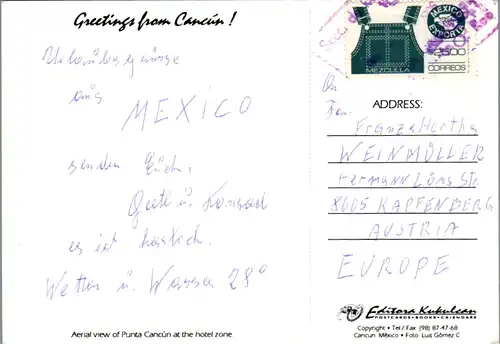 Greetings from Cancún !
Urlaubsgrüsse
aus
MEXICO
senden Euch,
Grete u. Konrad
es ist herrlich.
Wetter u. Wasser 28°
Aerial view of Punta Cancún at the hotel zone.
MEXICO
EXPORTA
2500
MEZCLILLA
CORREOS
An
Fam.
ADDRESS:
Franz & Hertha
WEINMÜLLER
Hermann Löns Str.
8605 KAPFENBERG
AUSTRIA
EUROPE
Editora Kukulcan
POSTCARDS • BOOKS • CALENDARS
Copyright • Tel / Fax (98) 87-47-68
Cancun, México • Foto: Luis Gómez C